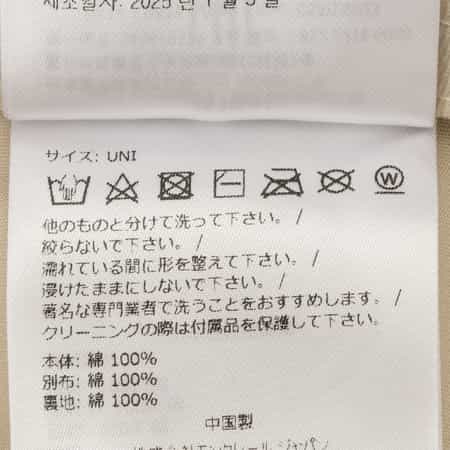 제조일자: 2025 년 1 월 3 일
サイズ: UNI
W
他のものと分けて洗って下さい。 /
絞らないで下さい。 /
濡れている間に形を整えて下さい。 /
浸けたままにしないで下さい。 /
著名な専門業者で洗うことをおすすめします。 /
クリーニングの際は付属品を保護して下さい。
本体: 綿 100%
別布: 綿 100%
裏地: 綿 100%
中国製
株式会社モンクレール ジャパン